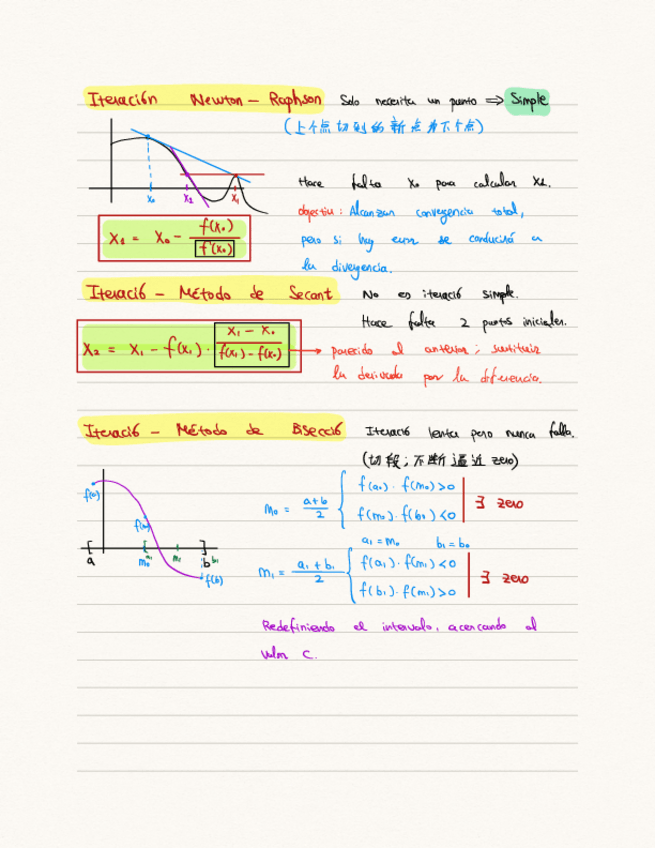 Iteración Newton-Raphson Solo necesita un punto ⇒ Simple
(上个点切到的新点为下个点)
x₀ x₂ x₁
Hace falta x₀ para calcular x₁.
objectiu: Alcanzar convergencia total,
pero si hay error se conducirá a
la divergencia.
x₁ = x₀ - f(x₀) / f'(x₀)
Iteració - Método de Secant No es iteració simple.
Hace falta 2 puntos iniciales.
x₂ = x₁ - f(x₁) · (x₁ - x₀) / (f(x₁) - f(x₀))
parecido al anterior; sustituir
la derivada por la diferencia.
Iteració - Método de Bisecció Iteració lenta pero nunca falla.
(切段; 不断逼近 zero)
f(a)
a m₀ a₁ m₁ b b₁
f(b)
m₀ = (a+b)/2 { f(a₀) · f(m₀) > 0
f(m₀) · f(b₀) < 0 | ∃ zero
a₁ = m₀ b₁ = b₀
m₁ = (a₁ + b₁)/2 { f(a₁) · f(m₁) < 0
f(b₁) · f(m₁) > 0 | ∃ zero
Redefiniendo el intervalo, acercando al
valor c.